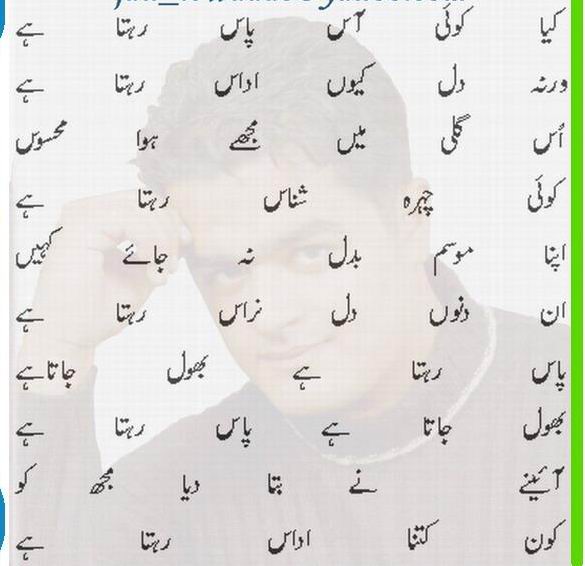 کیا کوئی آس پاس رہتا ہے
ورنہ دل کیوں اداس رہتا ہے
اُس گلی میں مجھے ہوا محسوس
کوئی چہرہ شناس رہتا ہے
اپنا موسم بدل نہ جائے کہیں
ان دنوں دل نراس رہتا ہے
پاس رہتا ہے بھول جاتاہے
بھول جاتا ہے پاس رہتا ہے
آئینے نے بتا دیا مجھ کو
کون کتنا اداس رہتا ہے